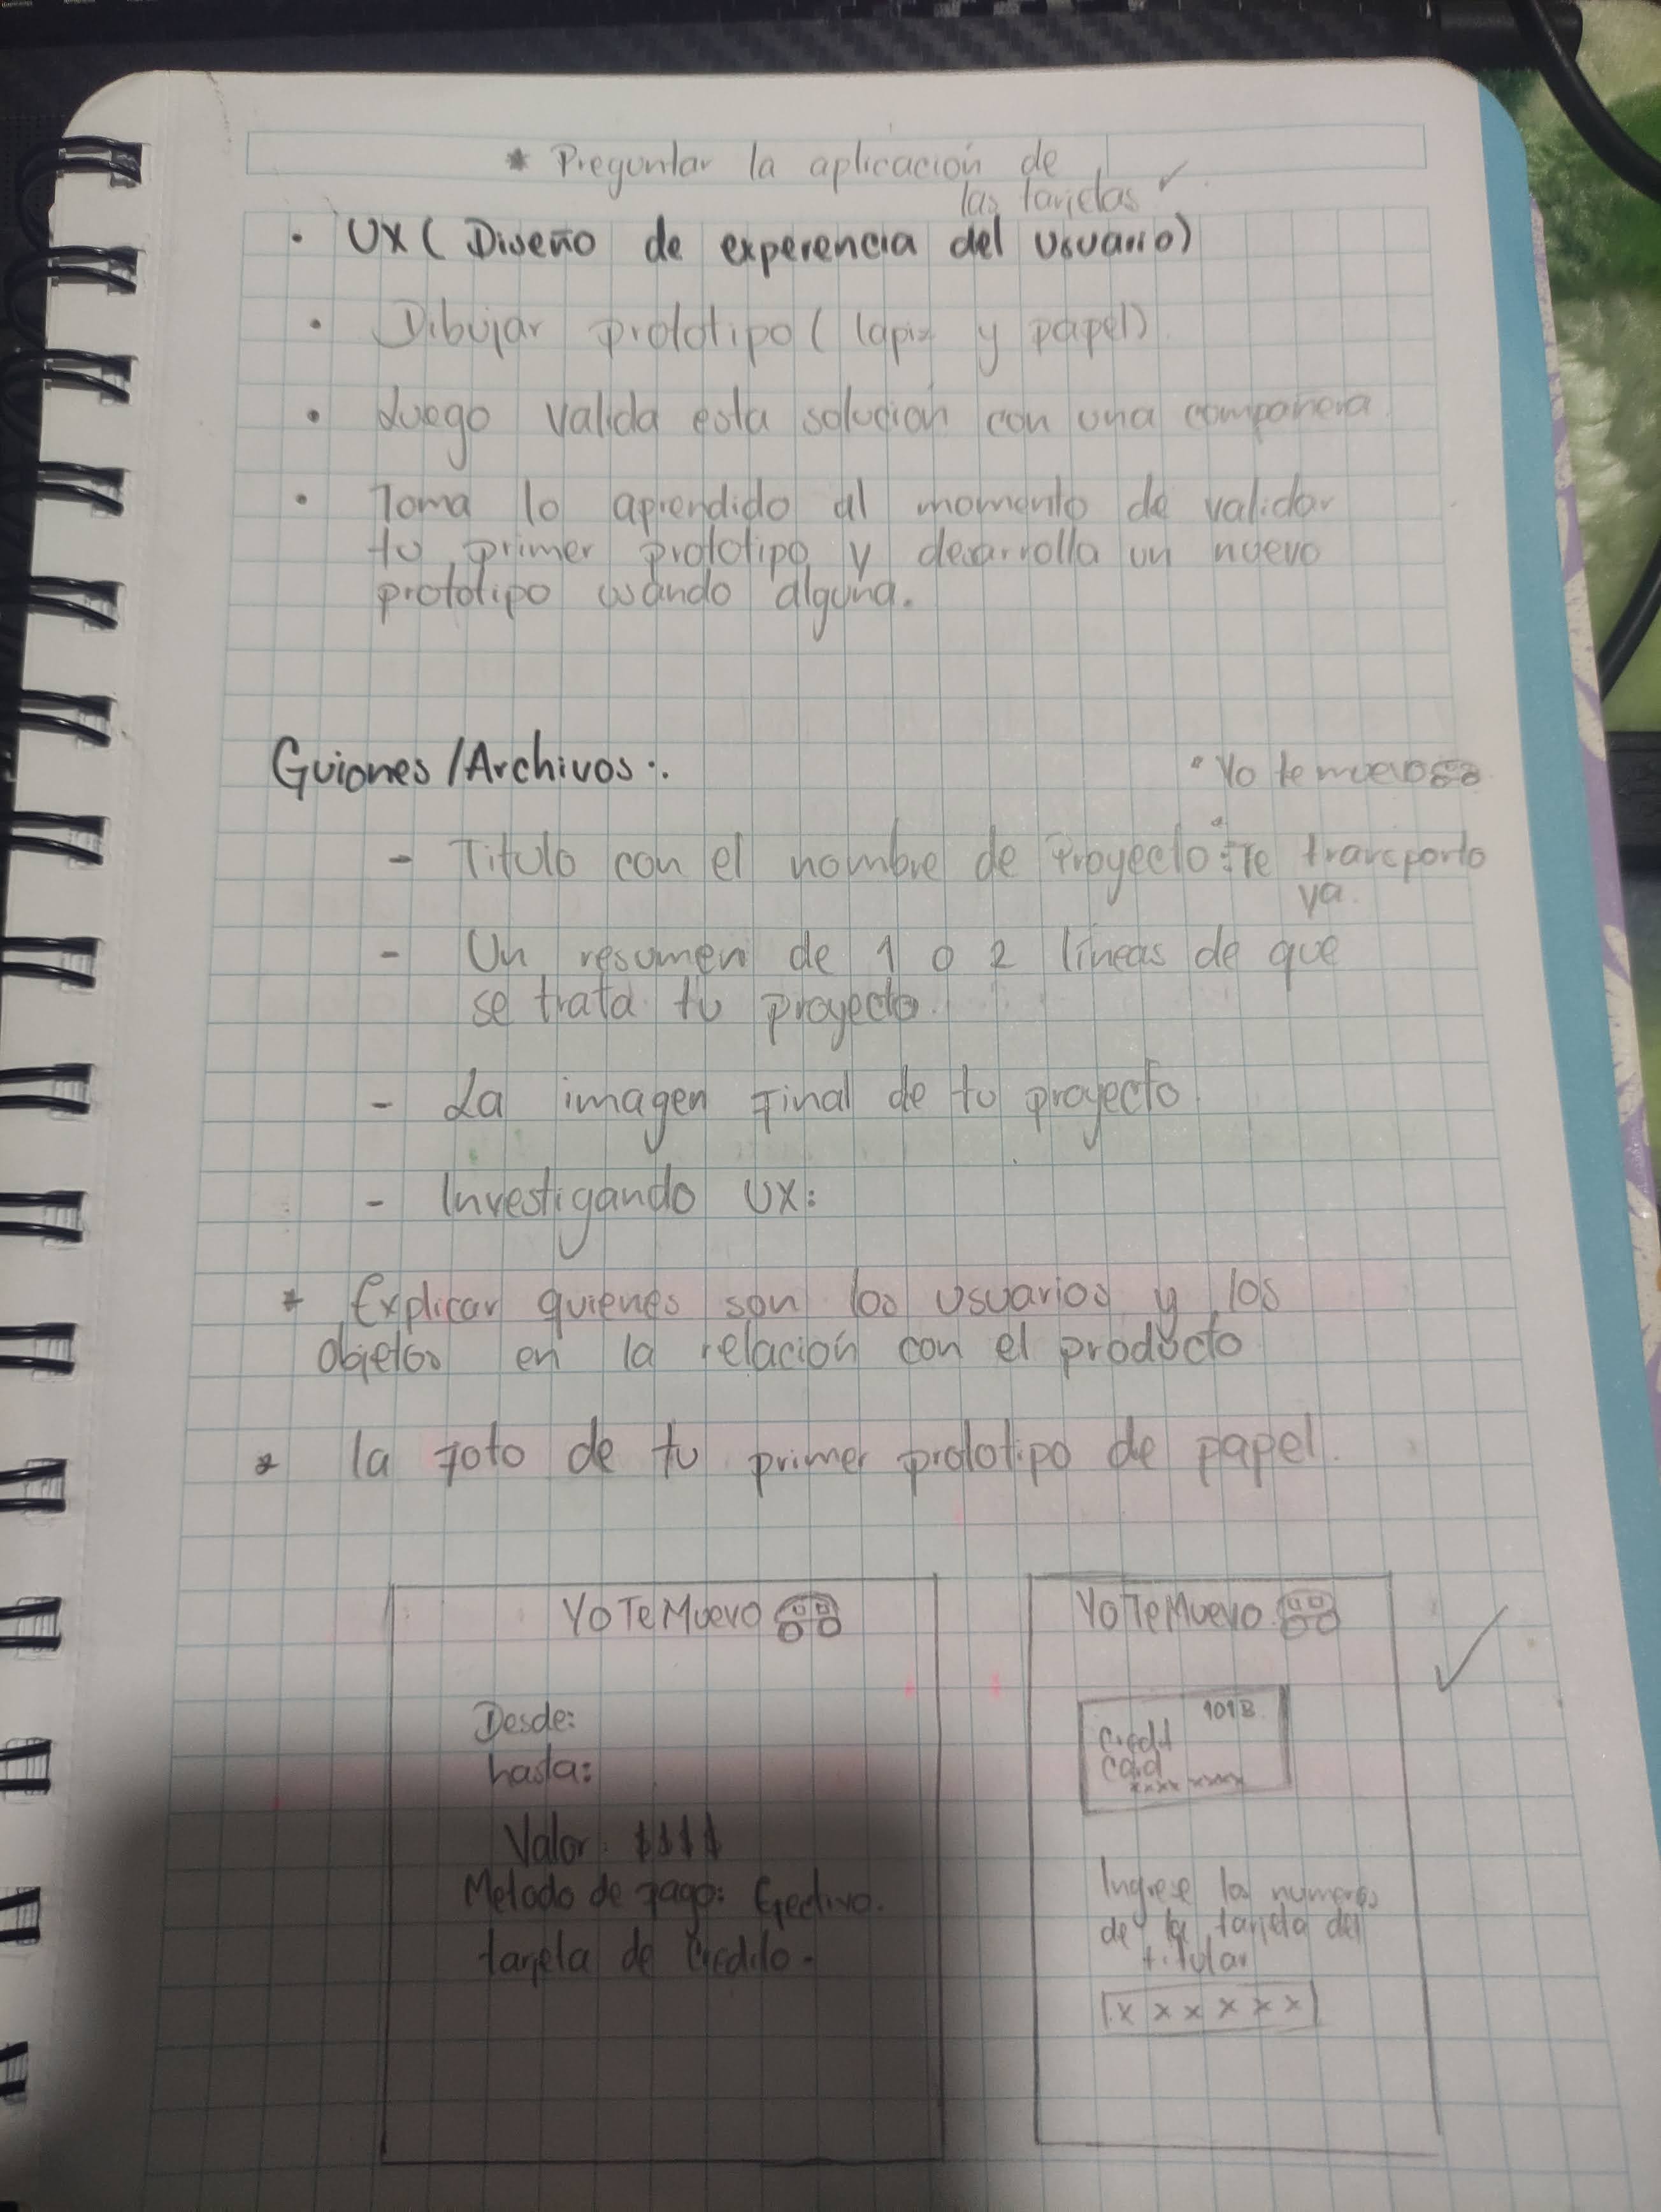 * Preguntar la aplicación de
las tarjetas ✓
• UX ( Diseño de experencia del usuario)
• Dibujar prototipo ( lapiz y papel)
• Luego valida esta solución con una compañera
• Toma lo aprendido al momento de validar
tu primer prototipo y desarrolla un nuevo
prototipo usando alguna.
Guiones /Archivos:.
• Yo te muevo
- Titulo con el nombre de Proyecto: Te transporto
ya.
- Un resumen de 1 o 2 líneas de que
se trata tu proyecto.
- La imagen Final de tu proyecto.
- Investigando UX:
* Explicar quienes son los usuarios y los
objetos en la relación con el producto
* la foto de tu primer prototipo de papel.
YoTeMuevo
Desde:
hasta:
Valor: $$$$
Metodo de pago: Efectivo.
tarjeta de Credito.
YoTeMuevo
Credit
Card
xxxx xxxx
Ingrese los numeros
de la tarjeta del
titular
x x x x x x